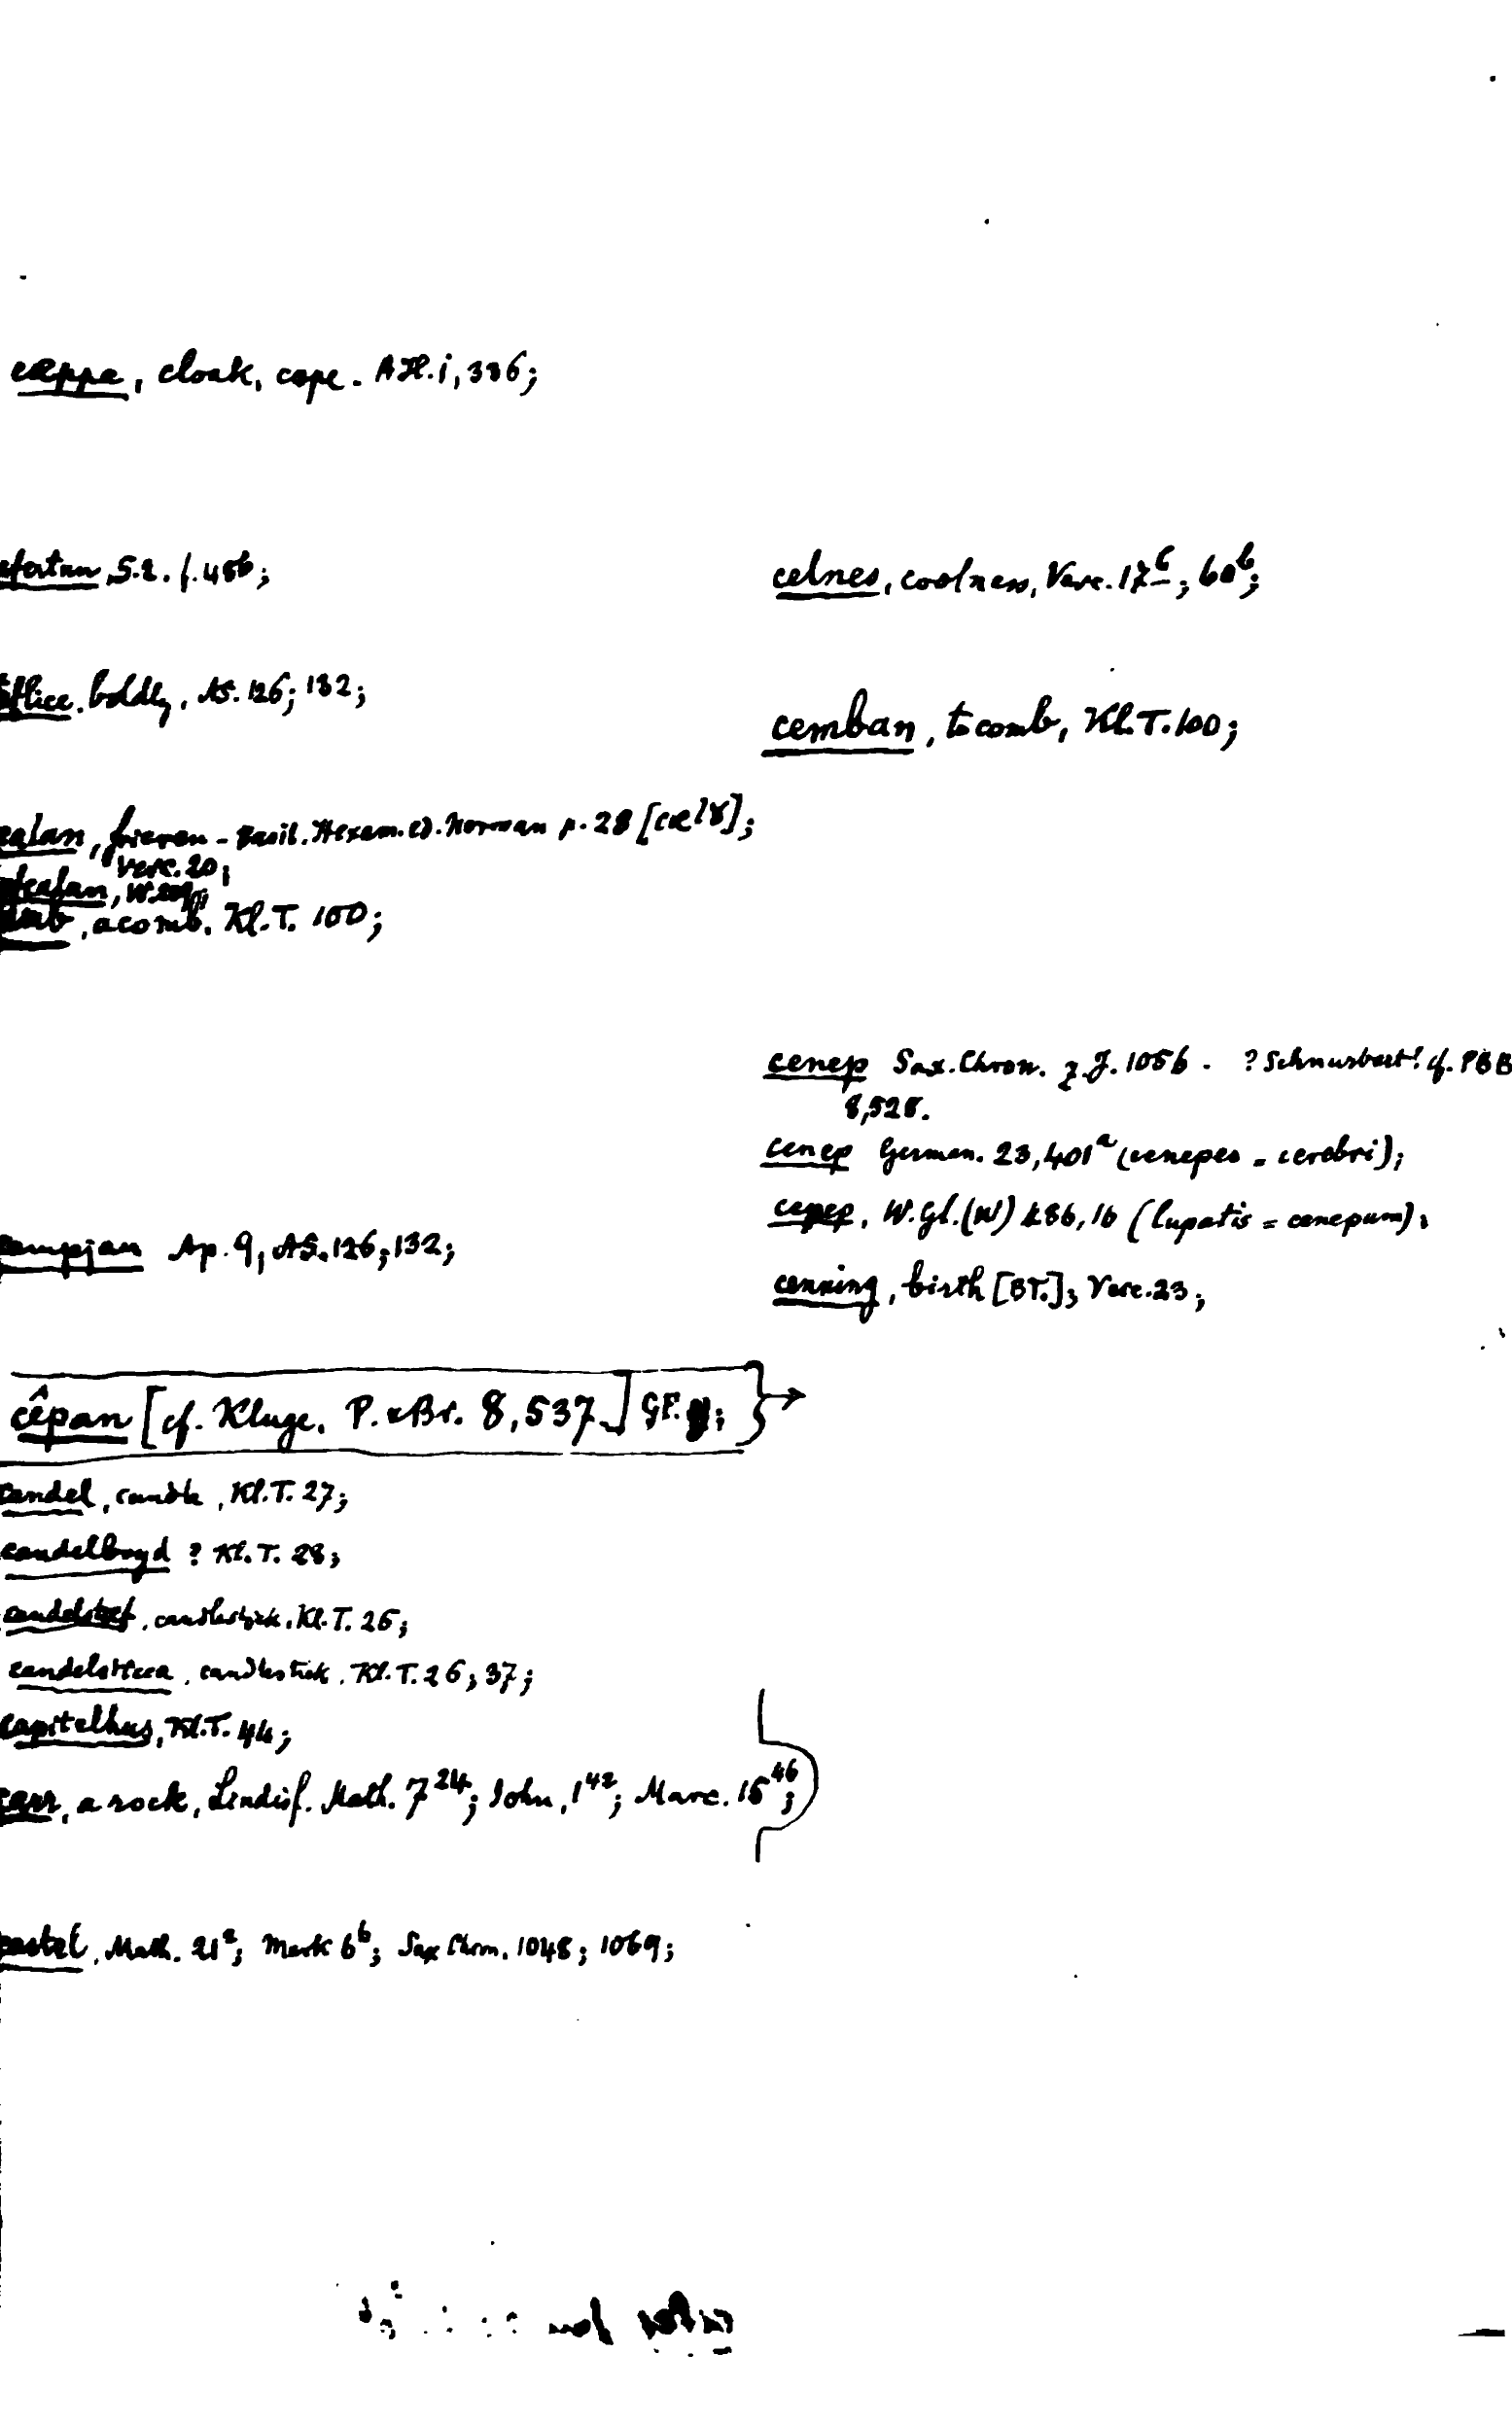 cæppe, cloak, cope. AH. i, 336;
S.2. f. 486;
boldly, AS. 126; 132;
frieren - Basil. Hexam. ed. Norman p. 28 [cælð];
Verc. 20;
a comb. Kl. T. 100;
Ap. 9, AS. 126, 132;
cêpan [cf. Kluge, P. & Br. 8,537.] GF.
candel, candle, Kl. T. 27;
candelbryd ? Kl. T. 28;
candelstæf, candlestick, Kl. T. 26;
candelsticca, candlestick. Kl. T. 26; 37;
capitelhus, Kl. T. 44;
carr, a rock, Lindisf. Math. 7²⁴; John, 1⁴²; Marc. 15⁴⁶;
castel, Math. 21²; Mark 6⁶; Sax Chron. 1048; 1069;
celnes, coolness, Verc. 17ᵇ; 60ᵇ;
cemban, to comb, Kl. T. 100;
cenep Sax. Chron. z. J. 1056. ? Schnurbart! cf. PBB
8,528.
cenep German. 23,401ᵃ (cenepes = cerebri);
cenep, W. Gl. (W) 486, 16 (lupatis = cenepum);
cenning, birth [BT.]; Verc. 23;